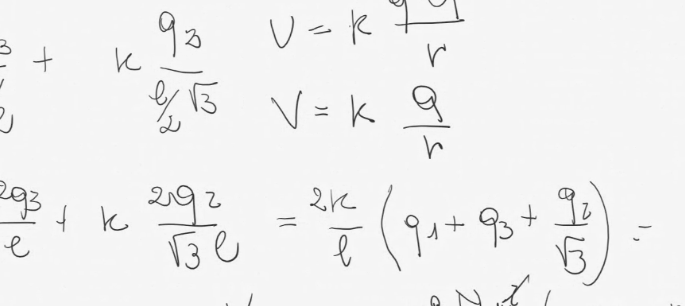 + k q3 / (l/2 √3)
U = k / r
V = k q / r
2q3 / l + k 2q2 / (√3 l) = 2k / l (q1 + q3 + q2 / √3) =